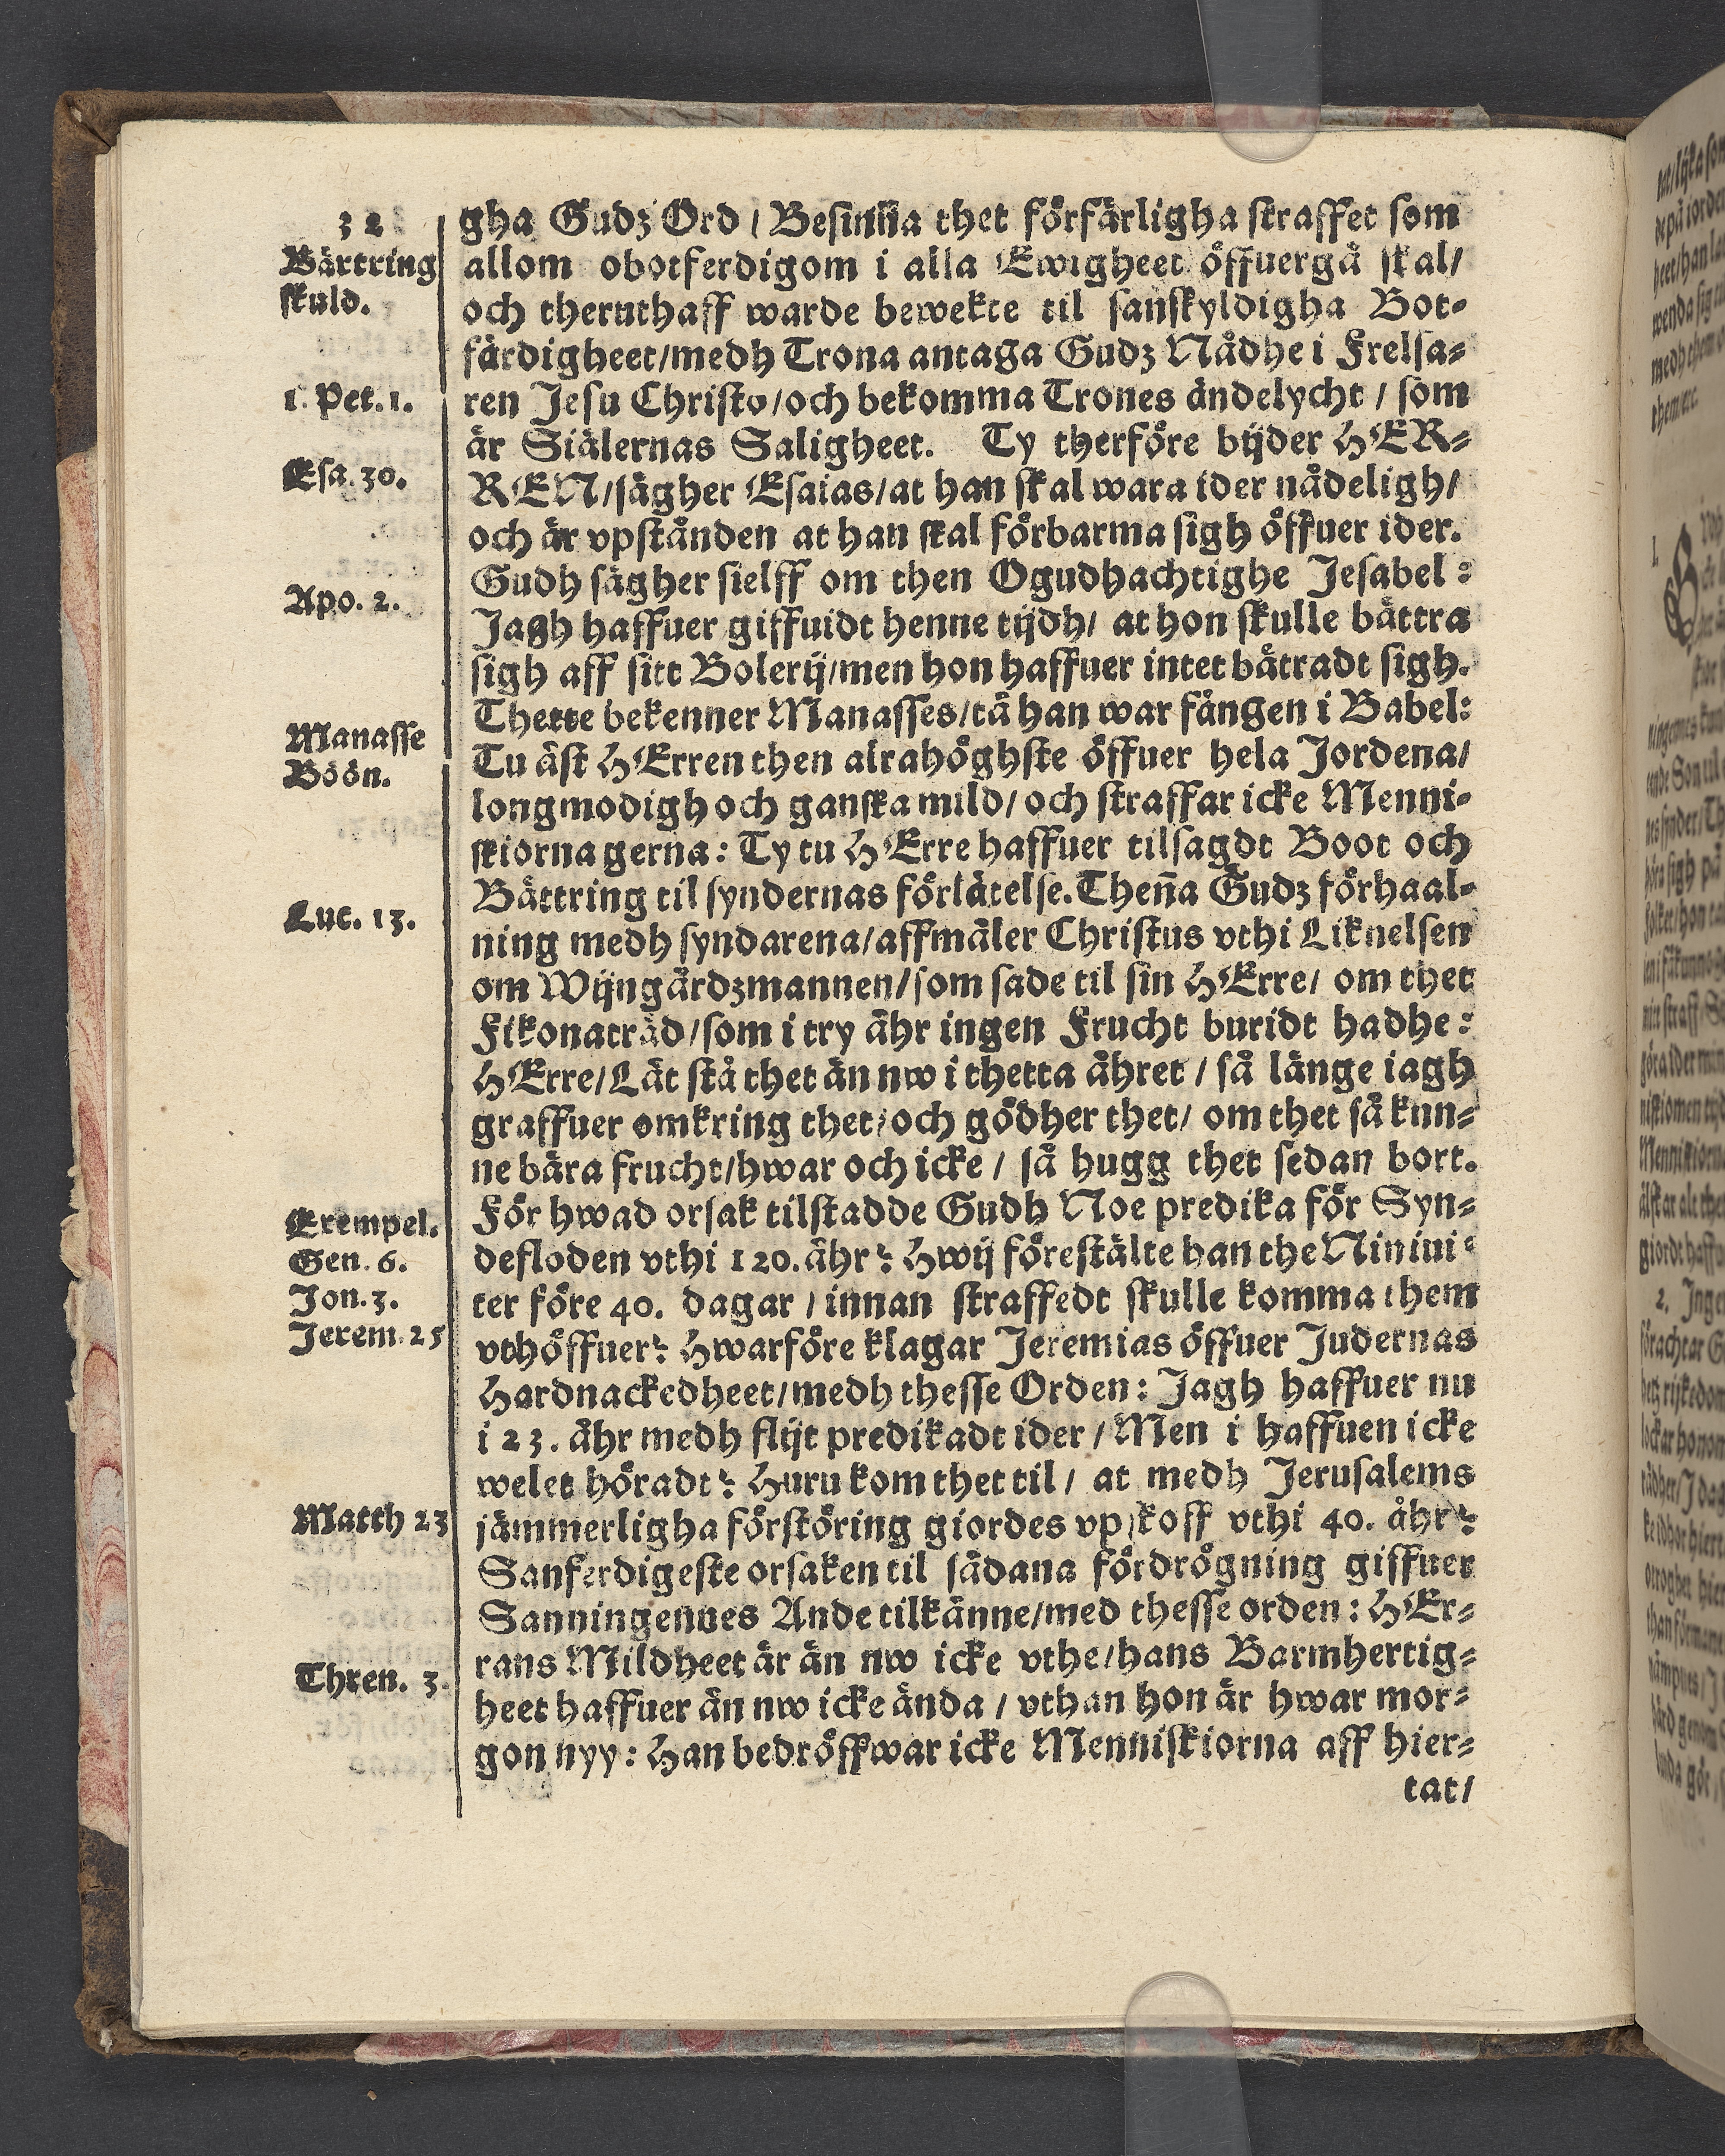 32
Bättring
skuld.
1. Pet. 1.
Esa. 30.
Apo. 2.
Manasse
Böön.
Luc. 13.
Exempel.
Gen. 6.
Jon. 3.
Jerem. 25
Matth 23
Thren. 3.
gha Gudz Ord / Besinña thet förfärligha straffet som
allom obotferdigom i alla Ewigheet öffuergå skal /
och theruthaff warde bewekte til sanskyldigha Bot-
färdigheet / medh Trona antaga Gudz Nådhe i Frelsa-
ren Jesu Christo / och bekomma Trones ändelycht / som
är Siälernas Saligheet. Ty therföre bijder HER-
REN / sägher Esaias / at han skal wara ider nådeligh /
och är vpstånden at han skal förbarma sigh öffuer ider.
Gudh sägher sielff om then Ogudhachtighe Jesabel :
Jagh haffuer giffuidt henne tijdh / at hon skulle bättra
sigh aff sitt Bolerij / men hon haffuer intet bätradt sigh.
Thette bekenner Manasses / tå han war fången i Babel:
Tu äst HErren then alrahöghste öffuer hela Jordena /
longmodigh och ganska mild / och straffar icke Menni-
skiorna gerna : Ty tu HErre haffuer tilsagdt Boot och
Bättring til syndernas förlåtelse. Theña Gudz förhaal-
ning medh syndarena / affmåler Christus vthi Liknelsen
om Wijngårdzmannen / som sade til sin HErre / om thet
Fikonaträd / som i try åhr ingen Frucht buridt hadhe :
HErre / Lät stå thet än nw i thetta åhret / så länge iagh
graffuer omkring thet / och gödher thet / om thet så kun-
ne bära frucht / hwar och icke / så hugg thet sedan bort.
För hwad orsak tilstadde Gudh Noe predika för Syn-
defloden vthi 120. åhr? Hwij förestälte han the Niniui-
ter före 40. dagar / innan straffedt skulle komma them
vthöffuer? Hwarföre klagar Jeremias öffuer Judernas
Hardnackedheet / medh thesse Orden : Jagh haffuer nu
i 23. åhr medh flijt predikadt ider / Men i haffuen icke
welet höradt? Huru kom thet til / at medh Jerusalems
jämmerligha förstöring giordes vpskoff vthi 40. åhr?
Sanferdigeste orsaken til sådana fördrögning giffuer
Sanningennes Ande tilkänne / med thesse orden : HEr-
rans Mildheet är än nw icke vthe / hans Barmhertig-
heet haffuer än nw icke ända / vthan hon är hwar mor-
gon nyy : Han bedröffwar icke Menniskiorna aff hier-
tat /